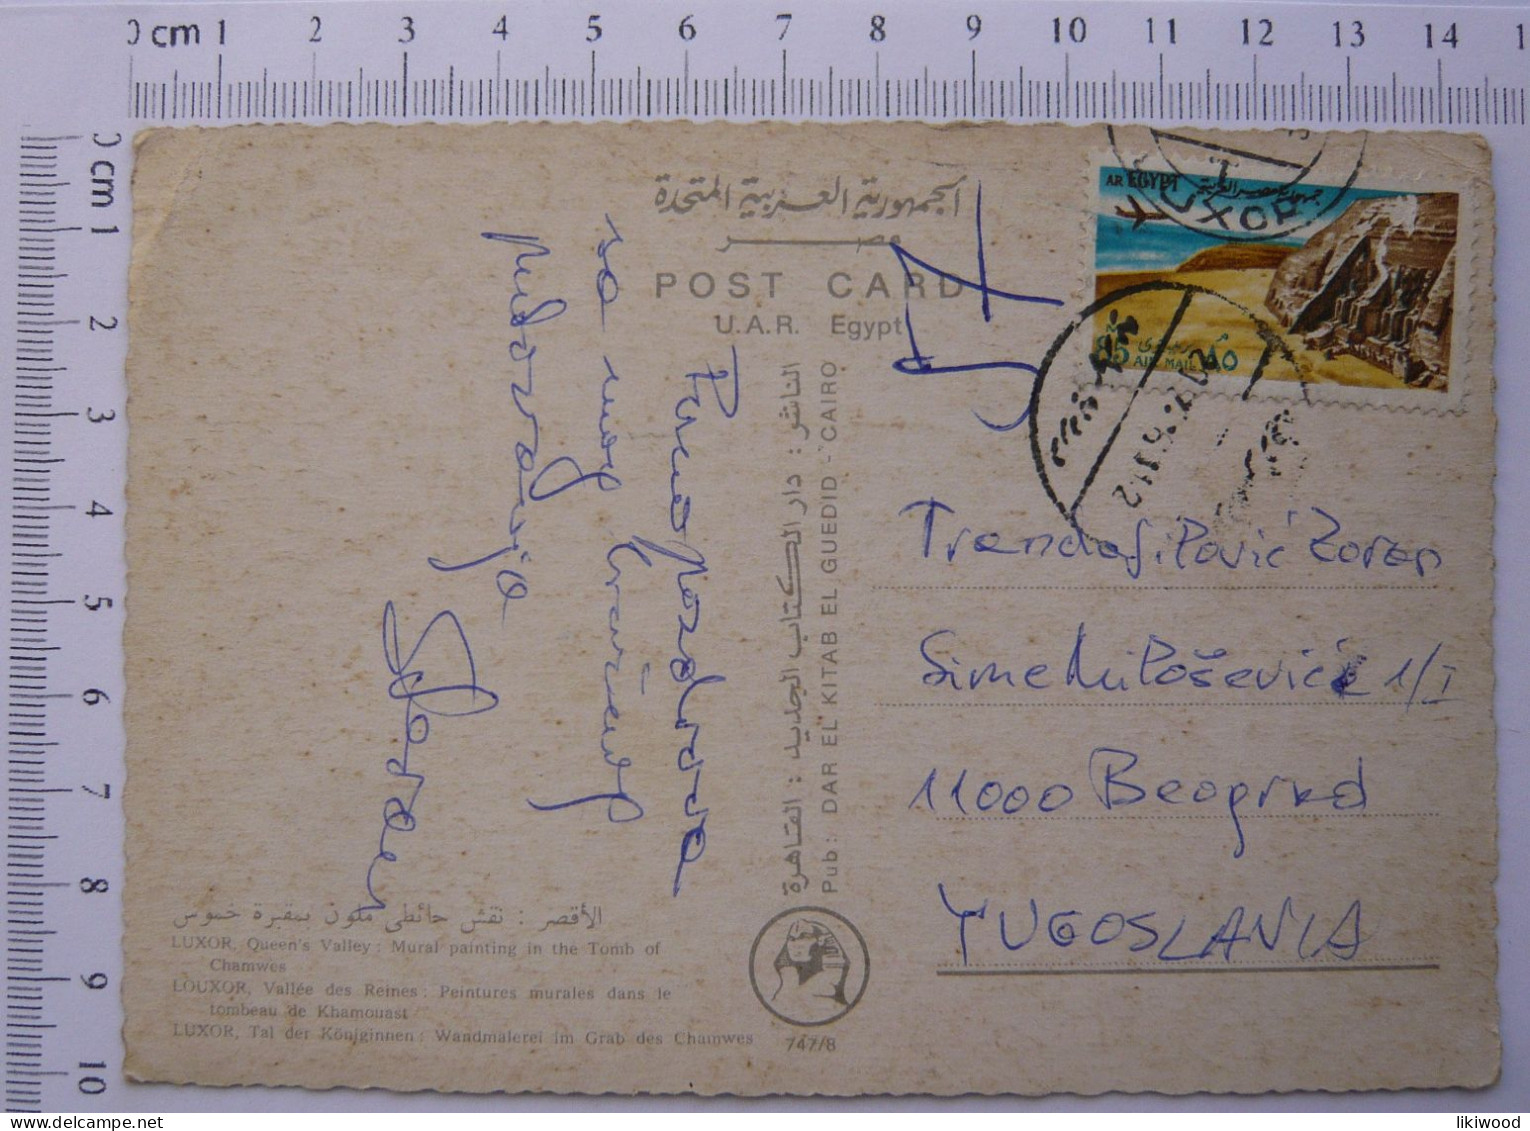 0 cm 1 2 3 4 5 6 7 8 9 10 11 12 13 14 1
0 cm 1 2 3 4 5 6 7 8 9 10
الجمهورية العربية المتحدة
مصر
POST CARD
U.A.R. Egypt
AR EGYPT جمهورية مصر العربية
85 M AIR MAIL ٨٥ م بريد جوى
LUXOR
Puno pozdrava
sa mog
putovanja
Zoran
الناشر : دار الكتاب الجديد : القاهرة
Pub: DAR EL KITAB EL GUEDID - CAIRO
Trandafilović Zoran
Sime Miloševića 1/I
11000 Beograd
YUGOSLAVIA
الأقصر : نقش حائطى ملون بمقبرة خموس
LUXOR, Queen's Valley : Mural painting in the Tomb of
Chamwes
LOUXOR, Vallée des Reines : Peintures murales dans le
tombeau de Khamouast
LUXOR, Tal der Königinnen : Wandmalerei im Grab des Chamwes
747/8
likiwood